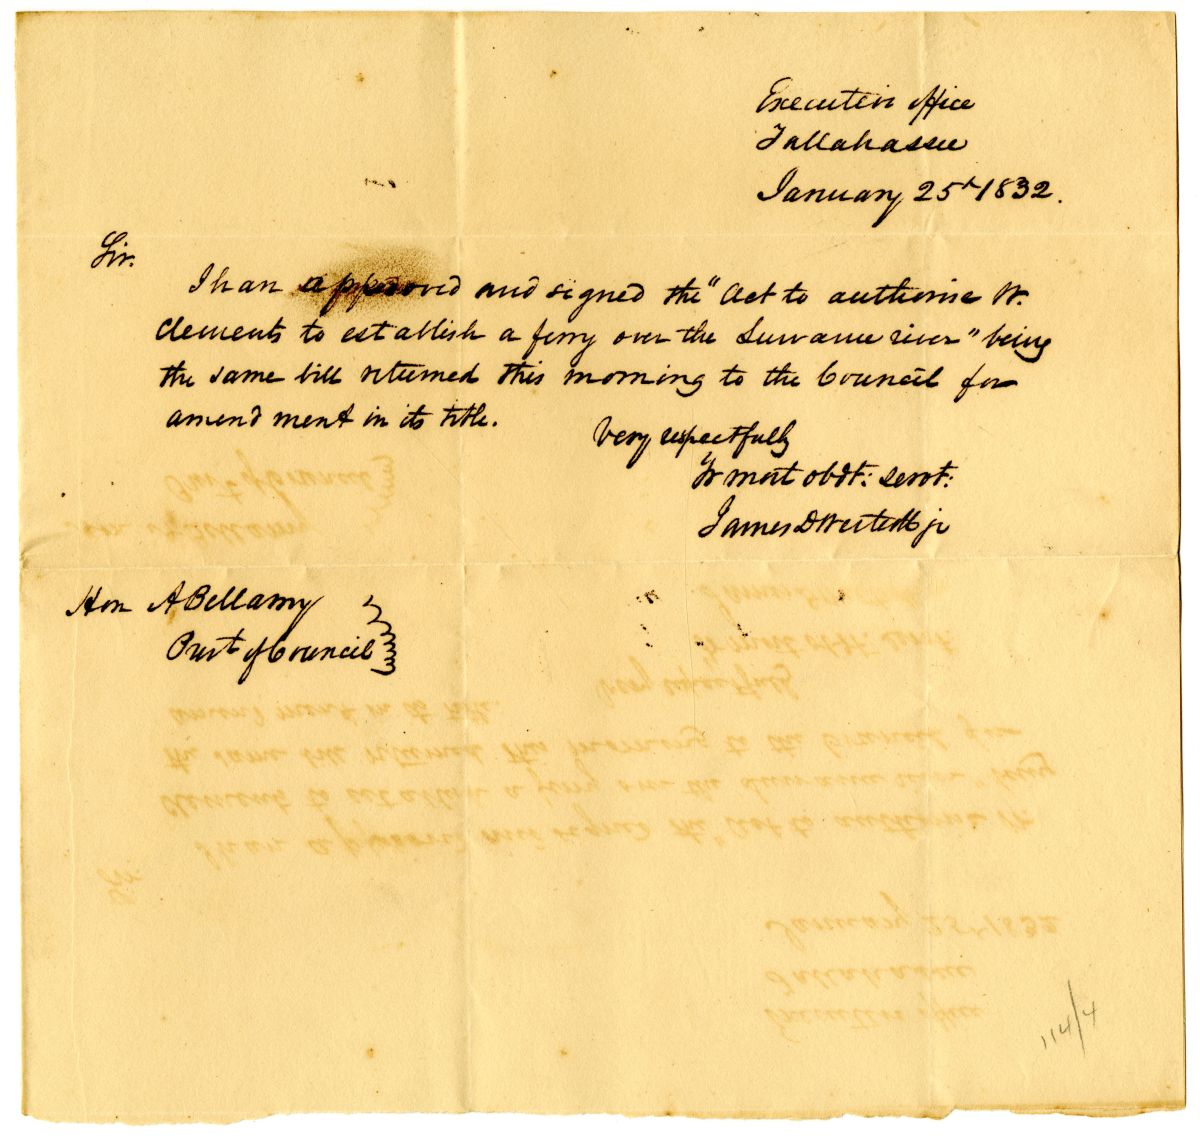 Executive office
Tallahassee
January 25th 1832.
Sir.
I have approved and signed the "Act to authorise W.
Clements to establish a ferry over the Suwanee river" being
the same bill returned this morning to the Council for
amendment in its title.
Very respectfully
Yr most obdt: servt:
James D Westcott jr
Hon A Bellamy
Prest of Council
114/4